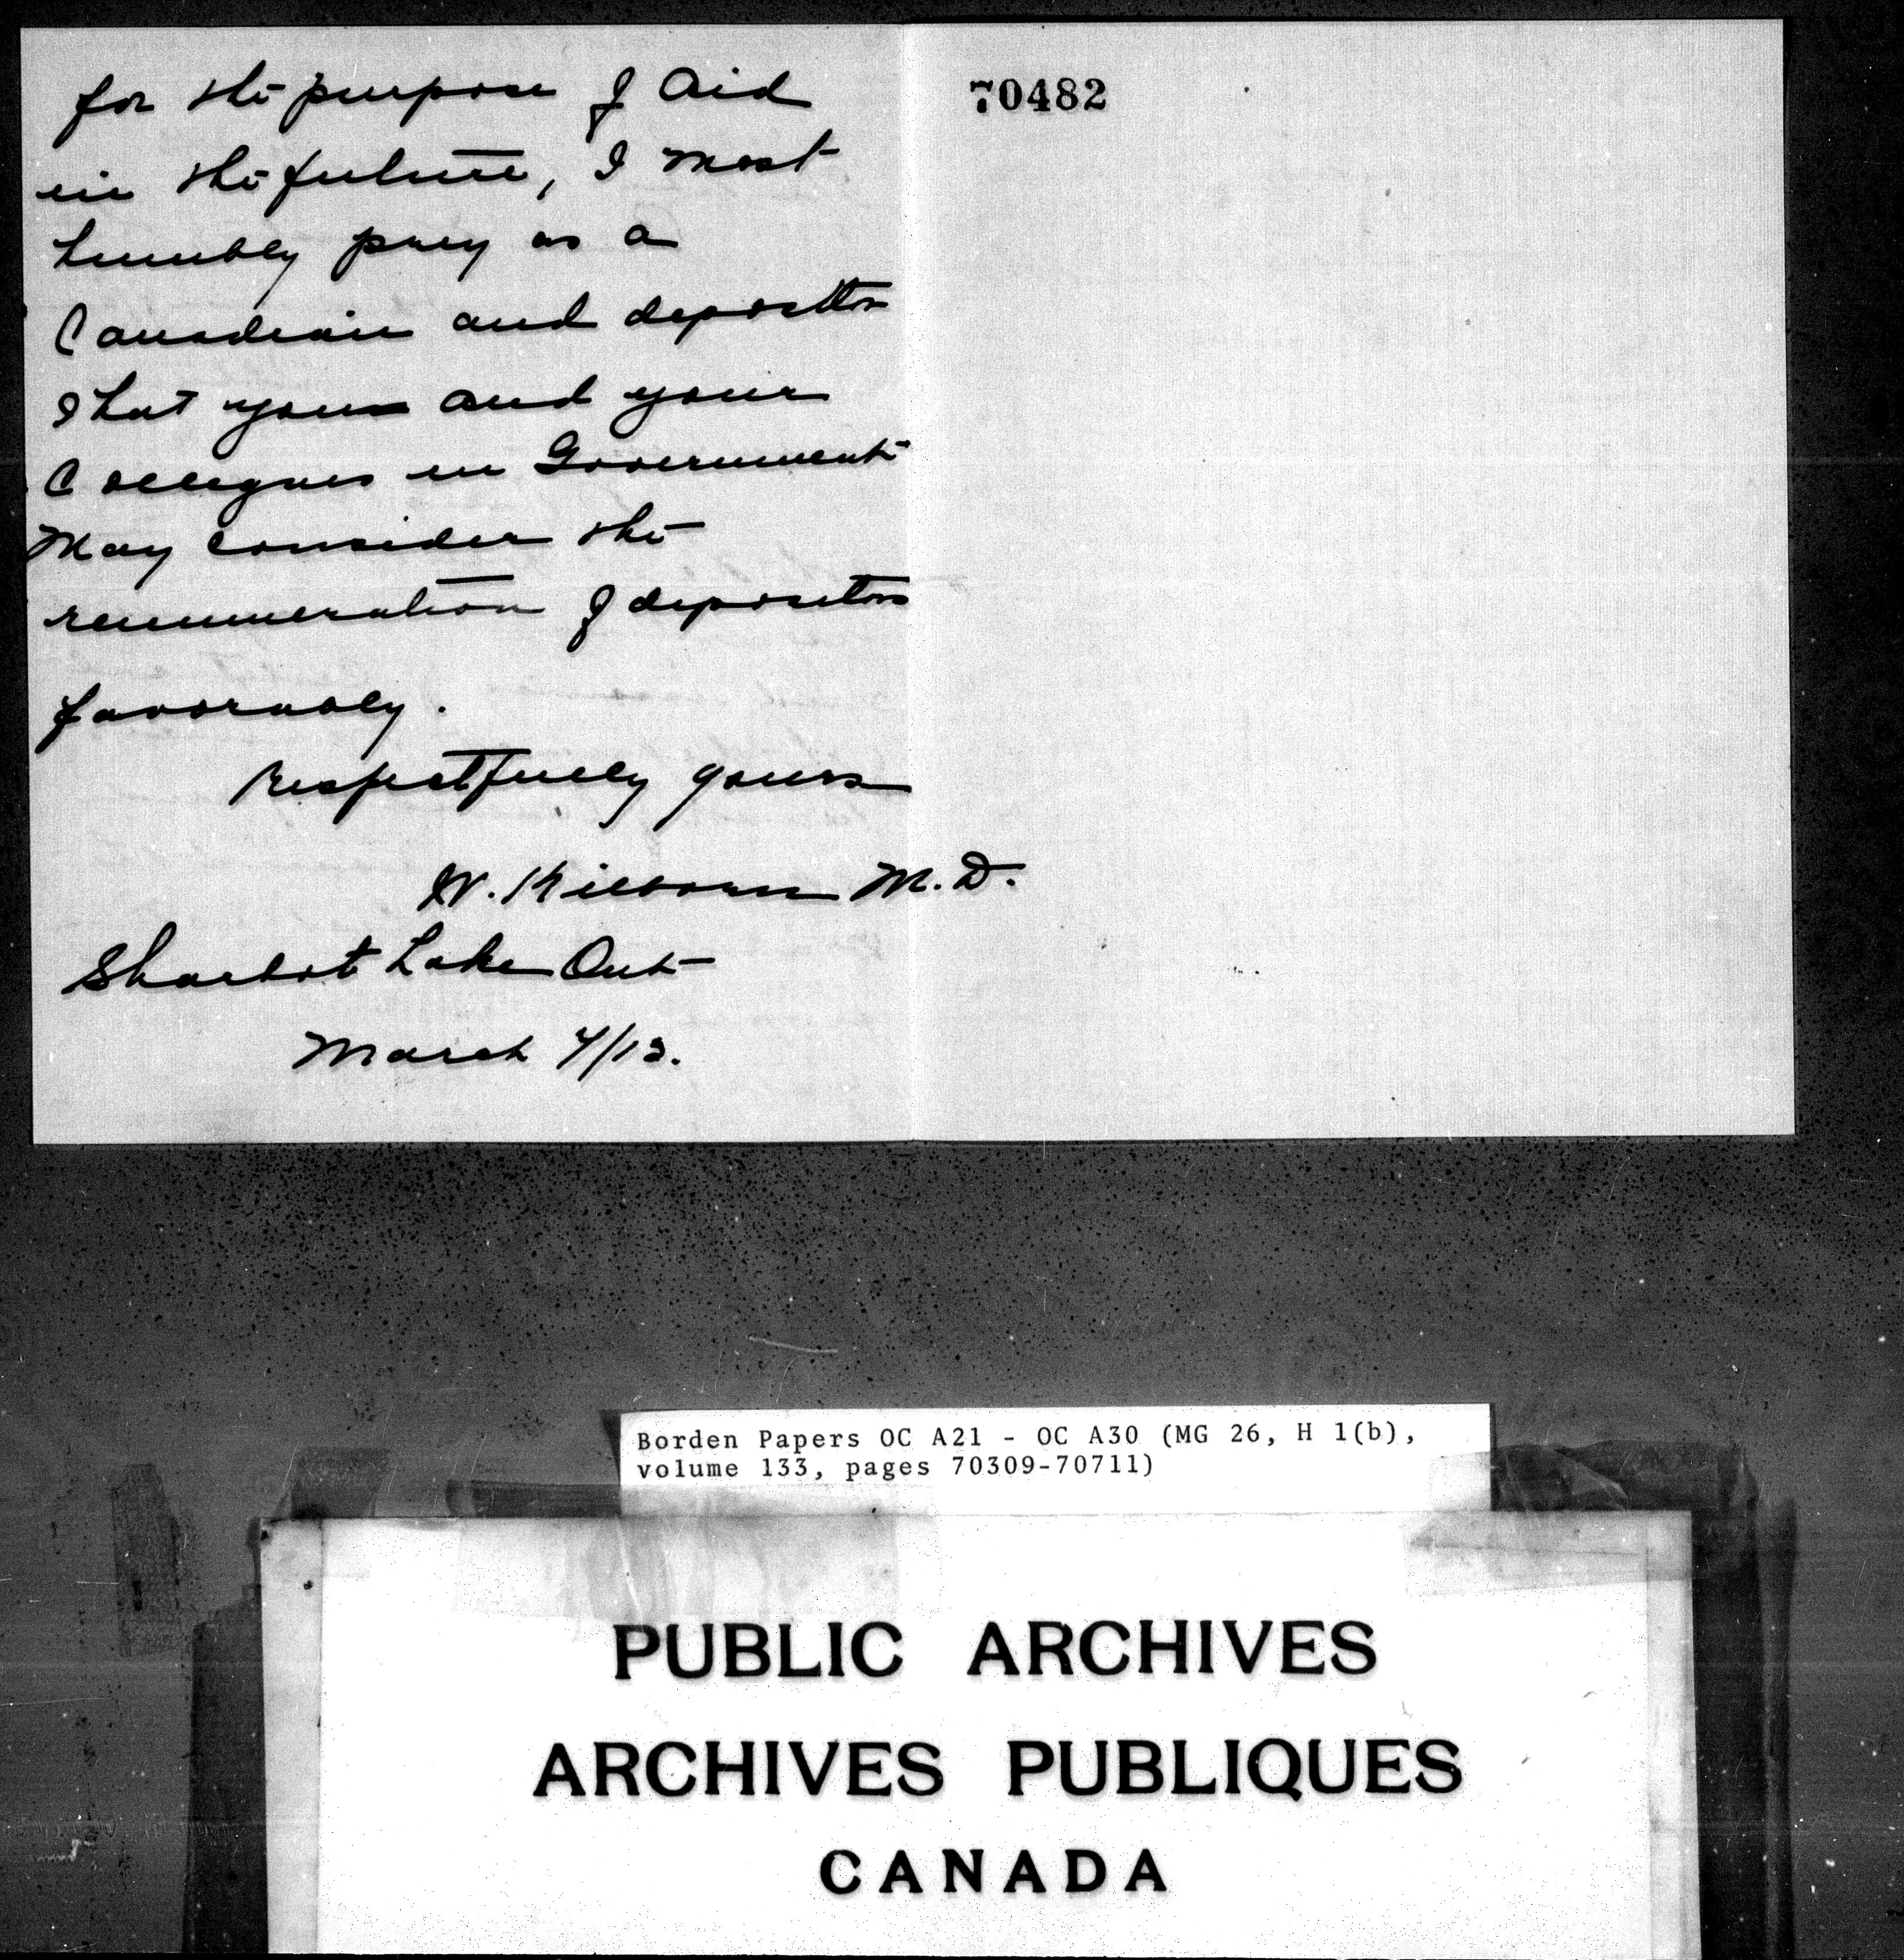 for the purpose of Aid
in the future, I most
humbly pray as a
Canadian and depositor
that you and your
Collegues in Government
May consider the
remuneration of depositors
favorably.
Respectfully yours
W. Kilborn M.D.
Sharbot Lake Ont
March 7/13.
70482
Borden Papers OC A21 - OC A30 (MG 26, H 1(b),
volume 133, pages 70309-70711)
PUBLIC ARCHIVES
ARCHIVES PUBLIQUES
CANADA